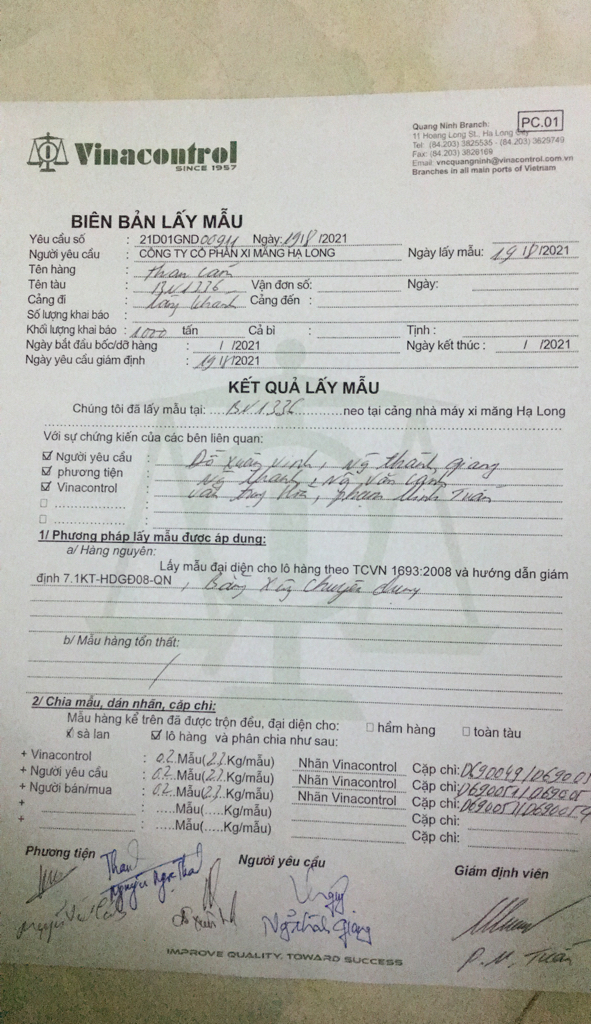 Vinacontrol
SINCE 1957
Quang Ninh Branch:
PC.01
11 Hoang Long St., Ha Long City
Tel: (84.203) 3825535 - (84.203) 3829749
Fax: (84.203) 3826169
Email: vncquangninh@vinacontrol.com.vn
Branches in all main ports of Vietnam
BIÊN BẢN LẤY MẪU
Yêu cầu số : 21D01GND0094 Ngày: 19/8/2021
Người yêu cầu : CÔNG TY CỔ PHẦN XI MĂNG HẠ LONG Ngày lấy mẫu: 19/8/2021
Tên hàng : Than cám
Tên tàu : BN1336 Vận đơn số: Ngày:
Cảng đi : Làng Khánh Cảng đến :
Số lượng khai báo :
Khối lượng khai báo : 1000 tấn Cả bì : Tịnh :
Ngày bắt đầu bốc/dỡ hàng : / /2021 Ngày kết thúc : / /2021
Ngày yêu cầu giám định : 19/8/2021
KẾT QUẢ LẤY MẪU
Chúng tôi đã lấy mẫu tại: BN1336 neo tại cảng nhà máy xi măng Hạ Long
Với sự chứng kiến của các bên liên quan:
Người yêu cầu : Đỗ Xuân Vinh, Ng Thành Giang
phương tiện : Ng Thành, Ng Văn Cảnh
Vinacontrol : Phạm Minh Tuấn
1/ Phương pháp lấy mẫu được áp dụng:
a/ Hàng nguyên:
Lấy mẫu đại diện cho lô hàng theo TCVN 1693:2008 và hướng dẫn giám
định 7.1KT-HDGĐ08-QN, Bằng Xẻng chuyên dụng
b/ Mẫu hàng tổn thất:
/
2/ Chia mẫu, dán nhãn, cặp chì:
Mẫu hàng kể trên đã được trộn đều, đại diện cho: hầm hàng toàn tàu
sà lan lô hàng và phân chia như sau:
+ Vinacontrol : 02 Mẫu(21 Kg/mẫu) Nhãn Vinacontrol Cặp chì: D690049/
+ Người yêu cầu : 02 Mẫu(21 Kg/mẫu) Nhãn Vinacontrol Cặp chì:
+ Người bán/mua : 02 Mẫu(21 Kg/mẫu) Nhãn Vinacontrol Cặp chì:
+ : .....Mẫu(.....Kg/mẫu) Cặp chì:
+ : .....Mẫu(.....Kg/mẫu) Cặp chì:
Phương tiện Người yêu cầu Giám định viên
Nguyễn Văn Cảnh Ng Thành Giang P.M. Tuấn
IMPROVE QUALITY, TOWARD SUCCESS